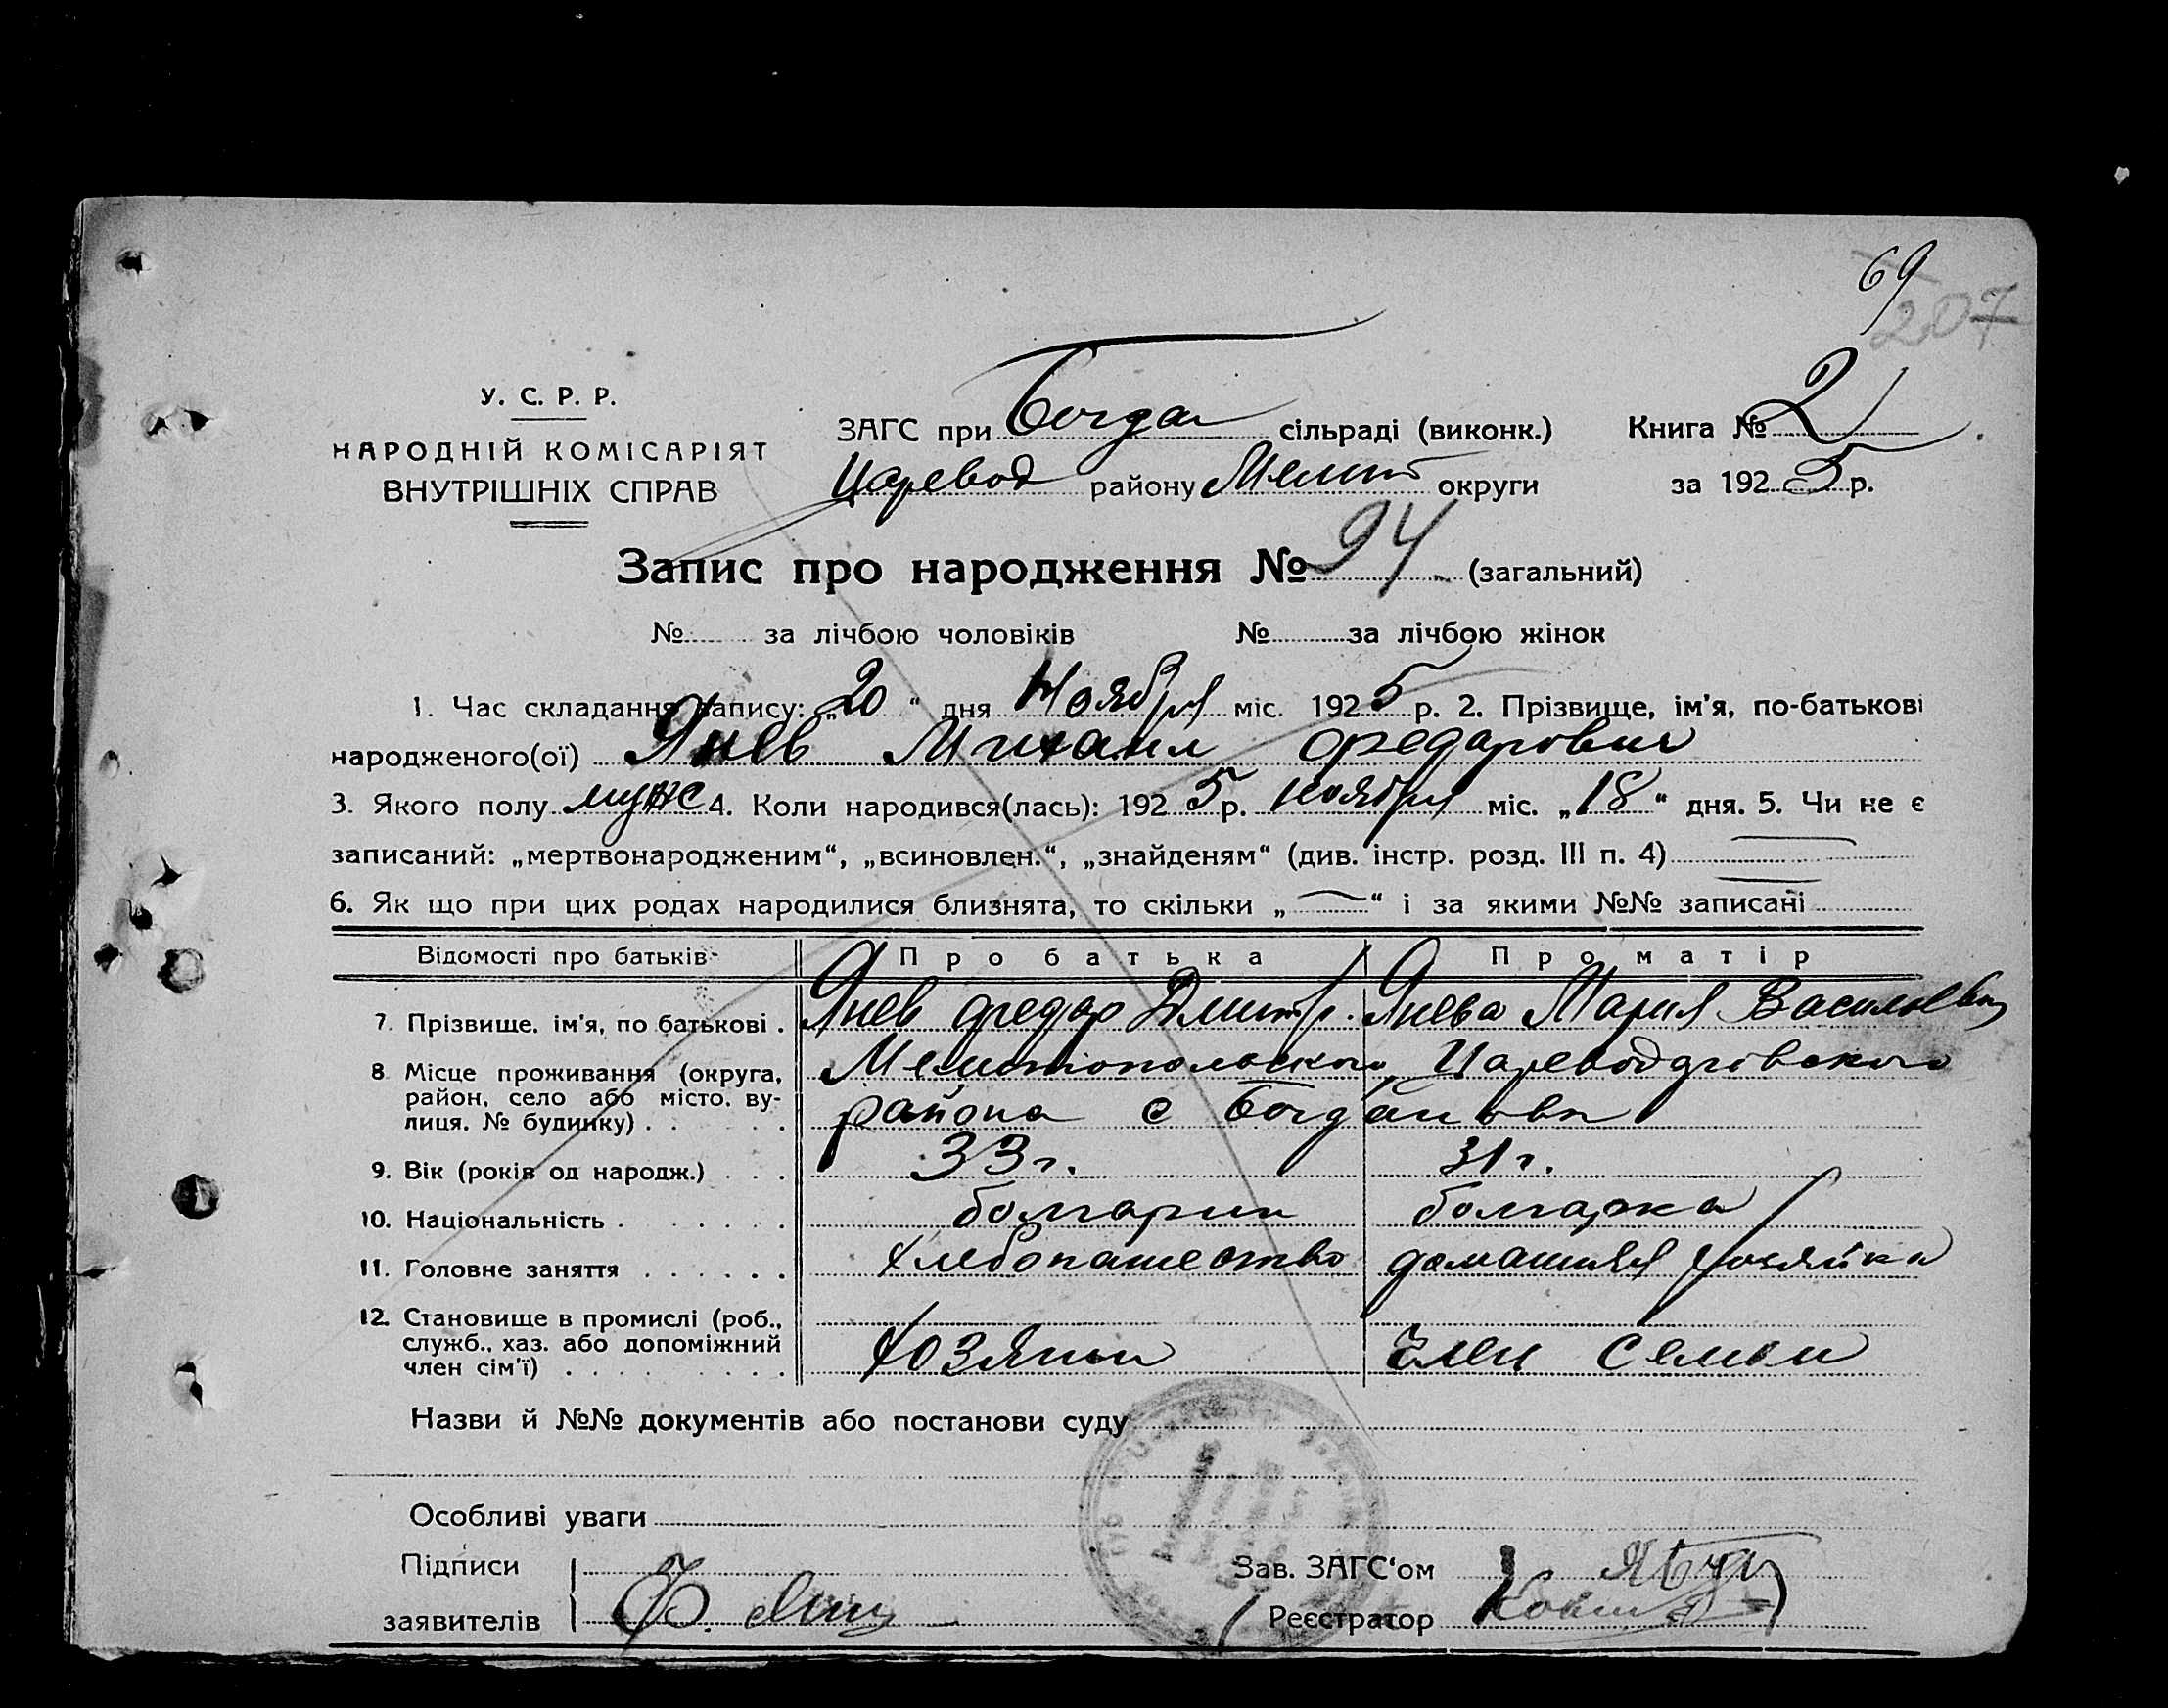 69
207
У. С. Р. Р.
НАРОДНІЙ КОМІСАРІЯТ
ВНУТРІШНІХ СПРАВ
ЗАГС при Богдан сільраді (виконк.) Книга № 2
Царевод району Мелит округи за 1925 р.
Запис про народження № 94 (загальний)
№ за лічбою чоловіків № за лічбою жінок
1. Час складання запису: „20“ дня Ноября міс. 1925 р. 2. Прізвище, ім'я, по-батькові
народженого(ої) Янев Михаил Федарович
3. Якого полу муж 4. Коли народився(лась): 1925 р. ноября міс. „18“ дня. 5. Чи не є
записаний: „мертвонародженим“, „всиновлен.“, „знайденям“ (див. інстр. розд. III п. 4)
6. Як що при цих родах народилися близнята, то скільки „ “ і за якими №№ записані
Відомості про батьків Про батька Про матір
7. Прізвище, ім'я, по батькові . Янев Федар Дмитр. Янева Мария Васильевн
8 Місце проживання (округа, Мелитопольского Цареводаровского
район, село або місто, ву- района с Богдановк
лиця, № будинку) . .
9. Вік (років од народж.) . . . 33 г. 31 г.
10. Національність . болгарин болгарка
11. Головне заняття . хлебопашество домашняя хозяйка
12. Становище в промислі (роб.,
служб., хаз. або допоміжний Хозяин Член семьи
член сім'ї) .
Назви й №№ документів або постанови суду
Особливі уваги
Підписи Зав. ЗАГС'ом
заявителів Ф. Реєстратор